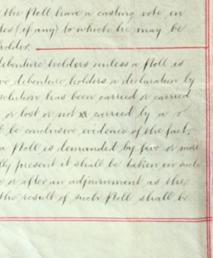 the Poll have a casting vote in
(if any) to which he may be
holder.
debenture holders unless a Poll is
debenture holders a declaration by
resolution has been carried or carried
or lost or not carried by a
be conclusive evidence of the fact.
a Poll is demanded by five or more
present it shall be taken in such
or after an adjournment as the
the result of such Poll shall be